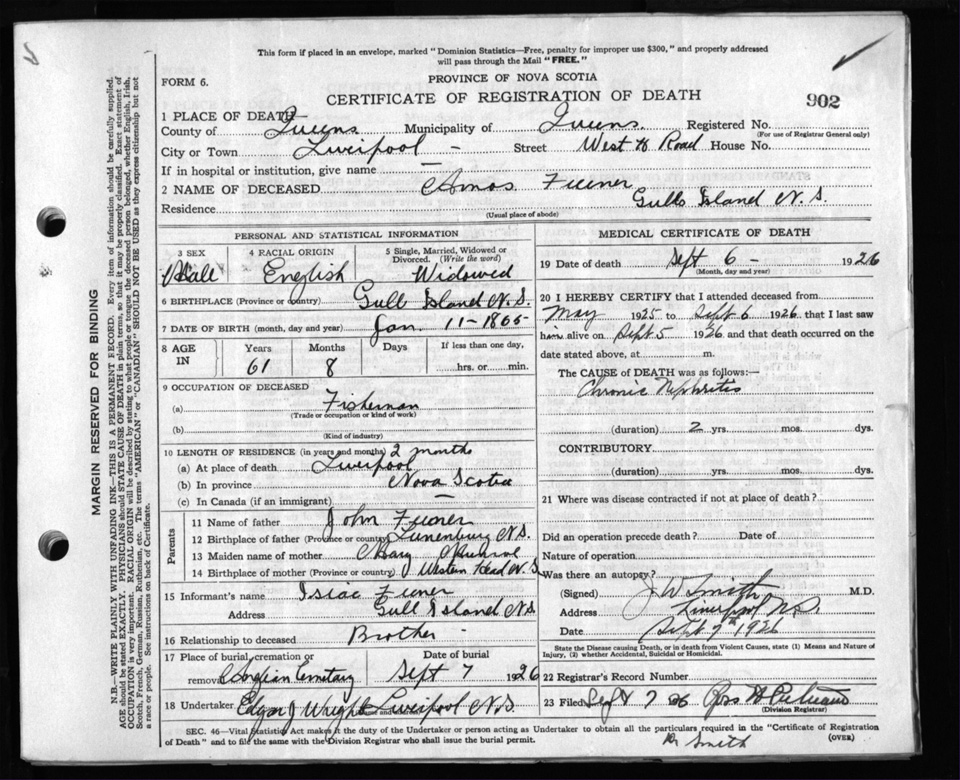 This form if placed in an envelope, marked "Dominion Statistics—Free, penalty for improper use $300," and properly addressed
will pass through the Mail "FREE."
FORM 6.
PROVINCE OF NOVA SCOTIA
CERTIFICATE OF REGISTRATION OF DEATH
902
1 PLACE OF DEATH
County of Queens Municipality of Queens. Registered No.
(For use of Registrar General only)
City or Town Liverpool - Street West Rd Road House No.
If in hospital or institution, give name —
2 NAME OF DECEASED Amos
Residence Gulls Island N.S.
(Usual place of abode)
PERSONAL AND STATISTICAL INFORMATION
3 SEX
Male
4 RACIAL ORIGIN
English
5 Single, Married, Widowed or
Divorced. (Write the word)
Widowed
6 BIRTHPLACE (Province or country) Gull Island N.S.
7 DATE OF BIRTH (month, day and year) Jan. 11-1865
8 AGE IN
Years Months Days If less than one day,
61 8 hrs. or min.
9 OCCUPATION OF DECEASED
(a) Fisherman
(Trade or occupation or kind of work)
(b)
(Kind of industry)
10 LENGTH OF RESIDENCE (in years and months) 2 months
(a) At place of death Liverpool
(b) In province Nova Scotia
(c) In Canada (if an immigrant) —
Parents
11 Name of father John
12 Birthplace of father (Province or country) Lunenburg N.S.
13 Maiden name of mother Mary
14 Birthplace of mother (Province or country) Western Head N.S.
15 Informant's name Isiac
Address Gull Island N.S.
16 Relationship to deceased Brother -
17 Place of burial, cremation or
removal Anglian Cemetary
Date of burial
Sept 7 1926
18 Undertaker Edgar J Wright Liverpool N.S.
MEDICAL CERTIFICATE OF DEATH
19 Date of death Sept 6 - 1926
(Month, day and year)
20 I HEREBY CERTIFY that I attended deceased from
May 1925 to Sept 6 1926, that I last saw
him alive on Sept 5 1926 and that death occurred on the
date stated above, at m.
The CAUSE of DEATH was as follows:—
Chronic Nephritis
(duration) 2 yrs. mos. dys.
CONTRIBUTORY
(duration) yrs. mos. dys.
21 Where was disease contracted if not at place of death?
Did an operation precede death? Date of
Nature of operation
Was there an autopsy?
(Signed) J W Smith M.D.
Address Liverpool N.S.
Date Sept 7th 1926
State the Disease causing Death, or in death from Violent Causes, state (1) Means and Nature of
Injury, (2) whether Accidental, Suicidal or Homicidal.
22 Registrar's Record Number
23 Filed Sept 7 26
(Division Registrar)
SEC. 46—Vital Statistics Act makes it the duty of the Undertaker or person acting as Undertaker to obtain all the particulars required in the "Certificate of Registration
of Death" and to file the same with the Division Registrar who shall issue the burial permit.
(OVER)
Dr Smith
MARGIN RESERVED FOR BINDING
N.B.—WRITE PLAINLY WITH UNFADING INK—THIS IS A PERMANENT RECORD. Every item of information should be carefully supplied.
AGE should be stated EXACTLY. PHYSICIANS should STATE CAUSE OF DEATH in plain terms, so that it may be properly classified. Exact statement of
OCCUPATION is very important. RACIAL ORIGIN will be described by stating to what people or tongue the deceased person belonged, whether English, Irish,
Scotch, French, German, Russian, Ruthenian, etc. The terms "AMERICAN" or "CANADIAN" SHOULD NOT BE USED as they express citizenship but not
a race or people. See instructions on back of Certificate.